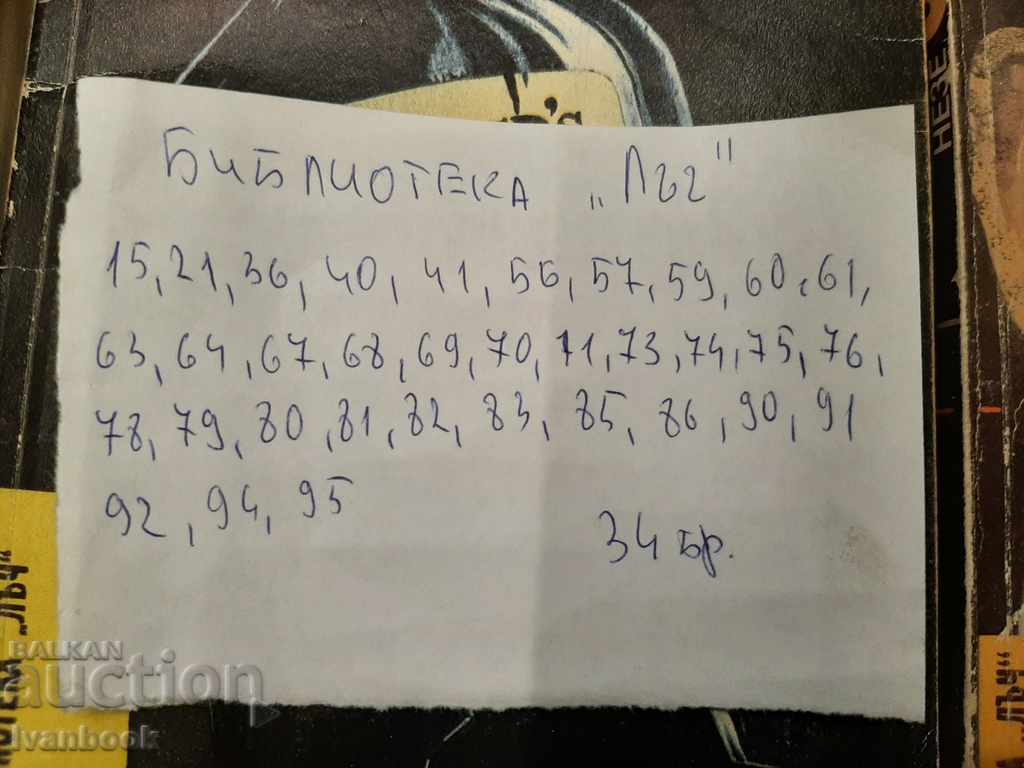 БИБЛИОТЕКА „Лъч"
15, 21, 36, 40, 41, 56, 57, 59, 60, 61,
63, 64, 67, 68, 69, 70, 71, 73, 74, 75, 76,
78, 79, 80, 81, 82, 83, 85, 86, 90, 91
92, 94, 95
34 бр.
НЕЗЕ
"ЛЪЧ“
ЛЪЧ“
BALKAN
auction
Ivanbook